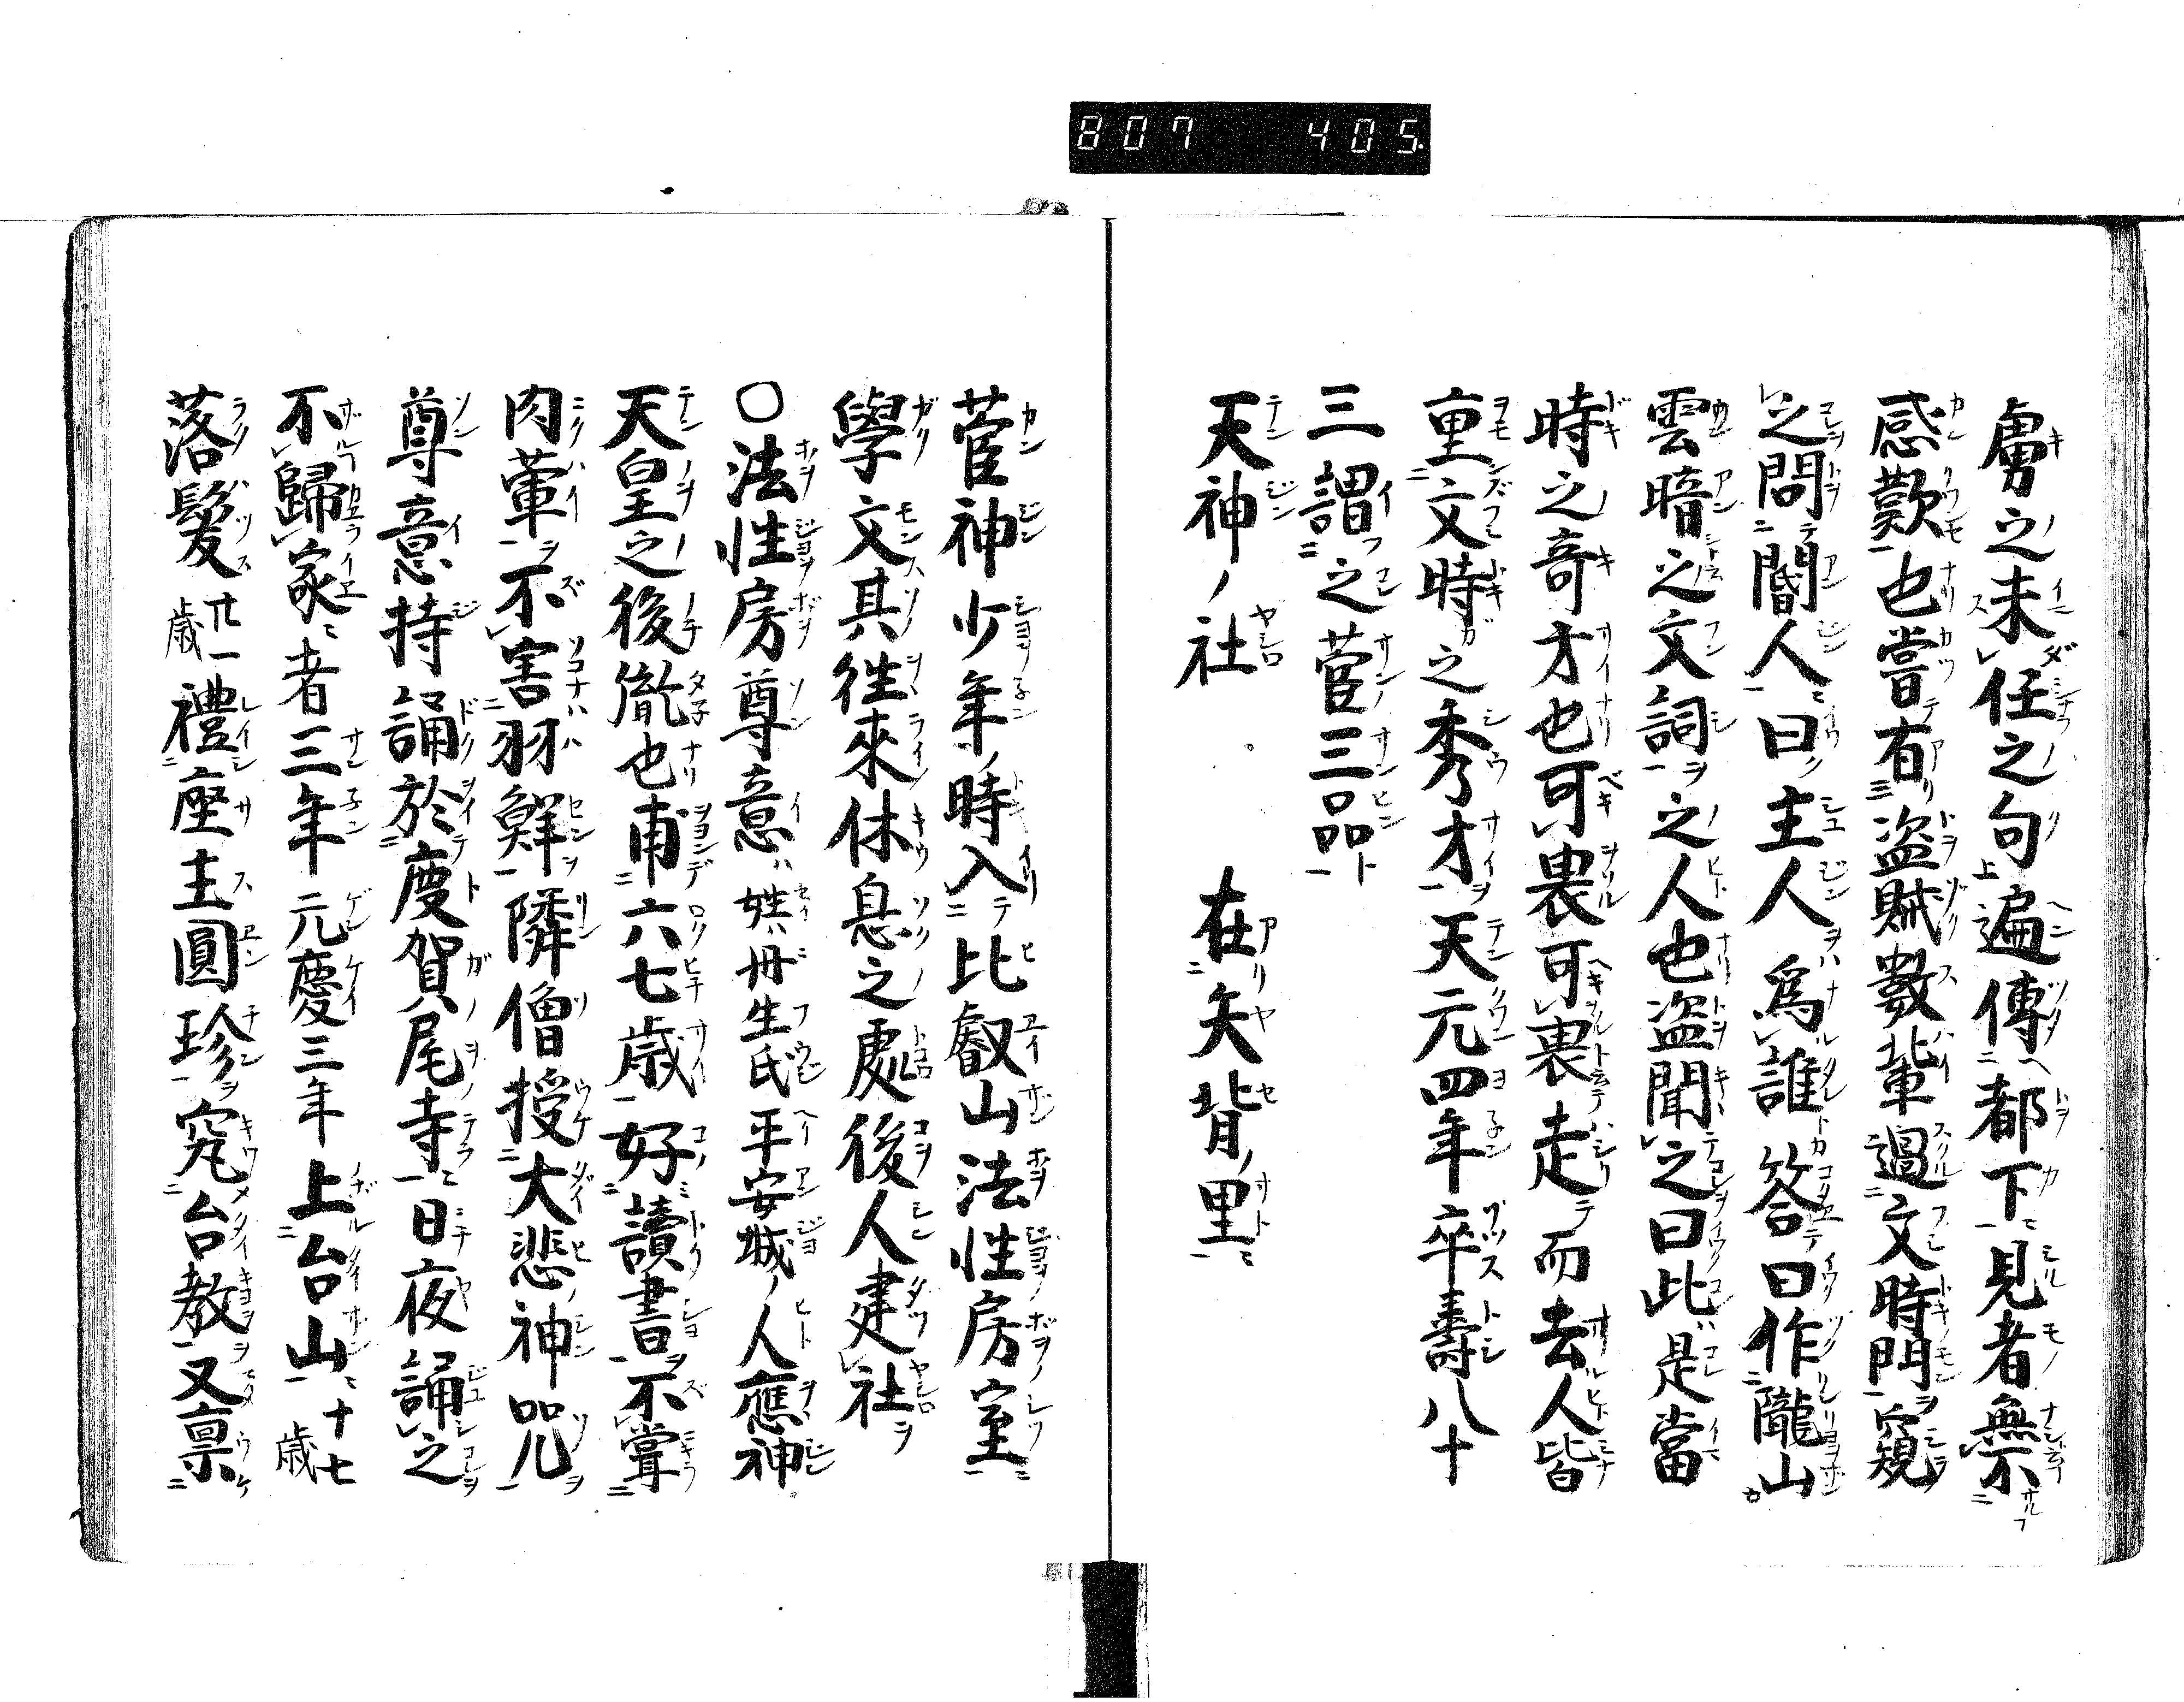 807 405
虜之未任之句遍傳都下見者無不
感歎也嘗有盗賊數輩過文時門窺
之問閽人曰主人為誰答曰作隴山
雲暗之文詞之人也盗聞之曰此是當
時之奇才也可畏可畏走而去人皆
重文時之秀才天元四年卒壽八十
三謂之菅三品
天神ノ社 在矢背里
菅神少年ノ時入比叡山法性房室
學文其徃來休息之處後人建社
〇法性房尊意姓ハ丹生氏平安城ノ人應神
天皇之後胤也甫六七歳好讀書不嘗
肉葷不害羽鮮隣僧授大悲神咒
尊意持誦於度賀尾寺日夜誦之
不歸家者三年元慶三年上台山十七歳
落髮廿一歳禮座主圓珍究台教又禀